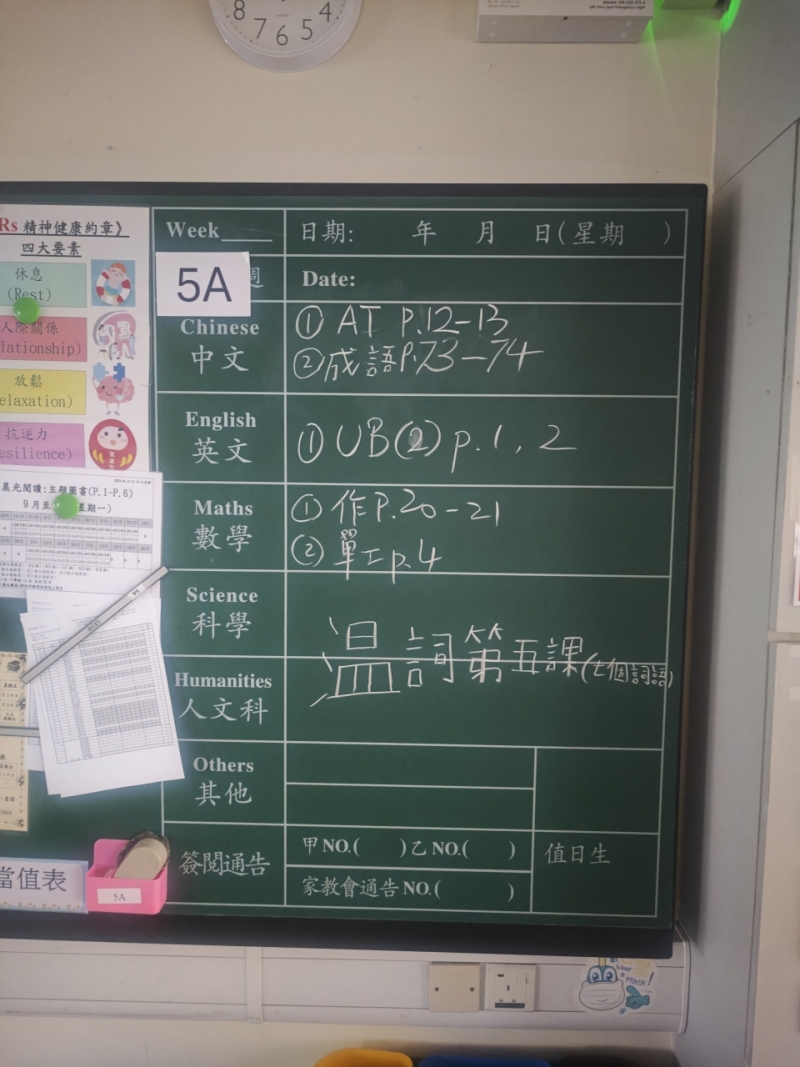 8 7 6 5 4
Rs 精神健康約章》
四大要素
休息
(Rest)
人際關係
lationship)
放鬆
elaxation)
抗逆力
esilience)
晨光閱讀:主題圖書(P.1-P.6)
9月至
星期一)
當值表
5A
Week____
日期: 年 月 日(星期 )
5A 週
Date:
Chinese
中文
① AT P.12-13
② 成語P.73-74
English
英文
① UB(2) p.1, 2
Maths
數學
① 作P.20-21
② 單工p.4
Science
科學
溫詞第五課(七個詞語)
Humanities
人文科
Others
其他
簽閱通告
甲NO.( )乙NO.( )
家教會通告NO.( )
值日生